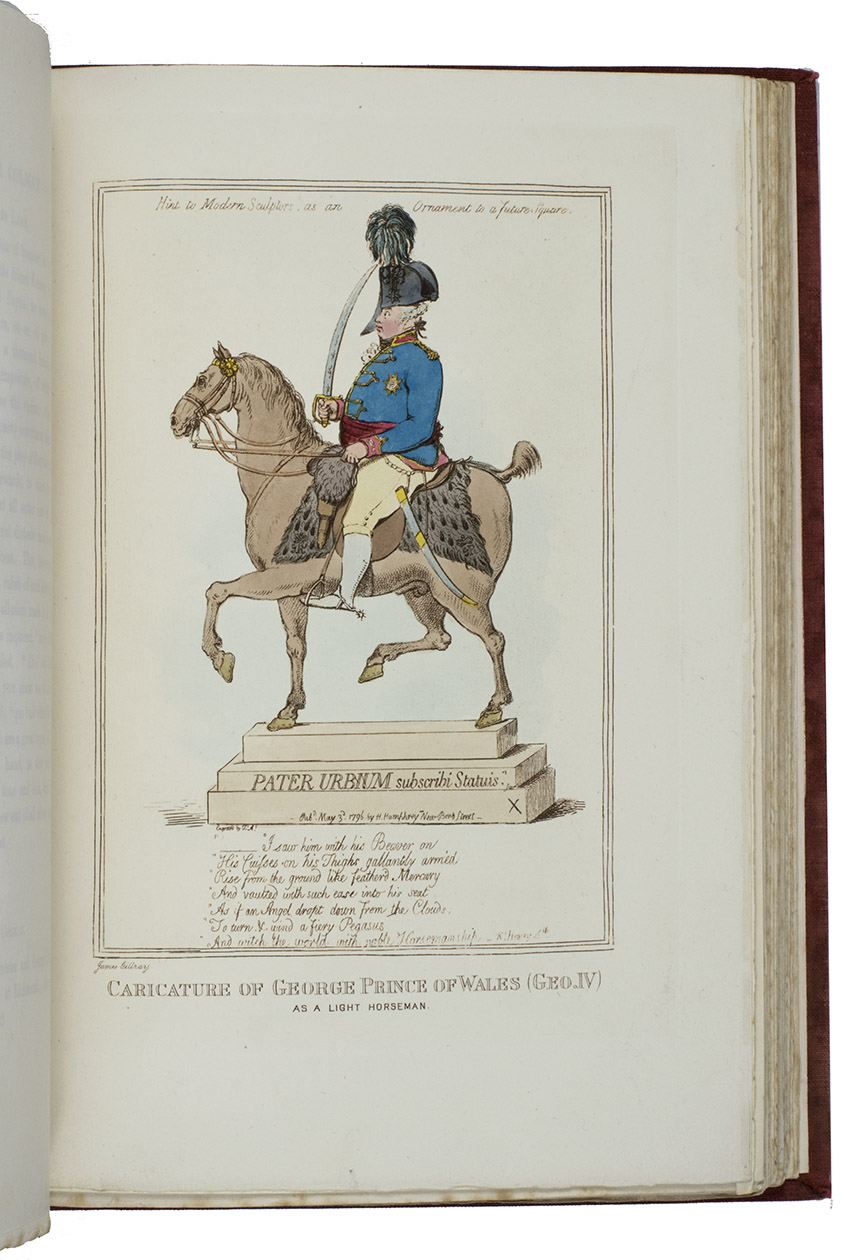 Hint to Modern Sculptors, as an Ornament to a future Square.
PATER URBIUM subscribi Statuis."
Pubd. May 3d. 1796 by H. Humphrey New Bond Street
X
"I saw him with his Beaver on
"His Cuisses on his Thighs gallantly arm'd
"Rise from the ground like feather'd Mercury
"And vaulted with such ease into his seat
"As if an Angel dropt down from the Clouds.
"To turn & wind a fiery Pegasus
"And witch the world with noble Horsemanship.
James Gillray
CARICATURE OF GEORGE PRINCE OF WALES (GEO. IV)
AS A LIGHT HORSEMAN.